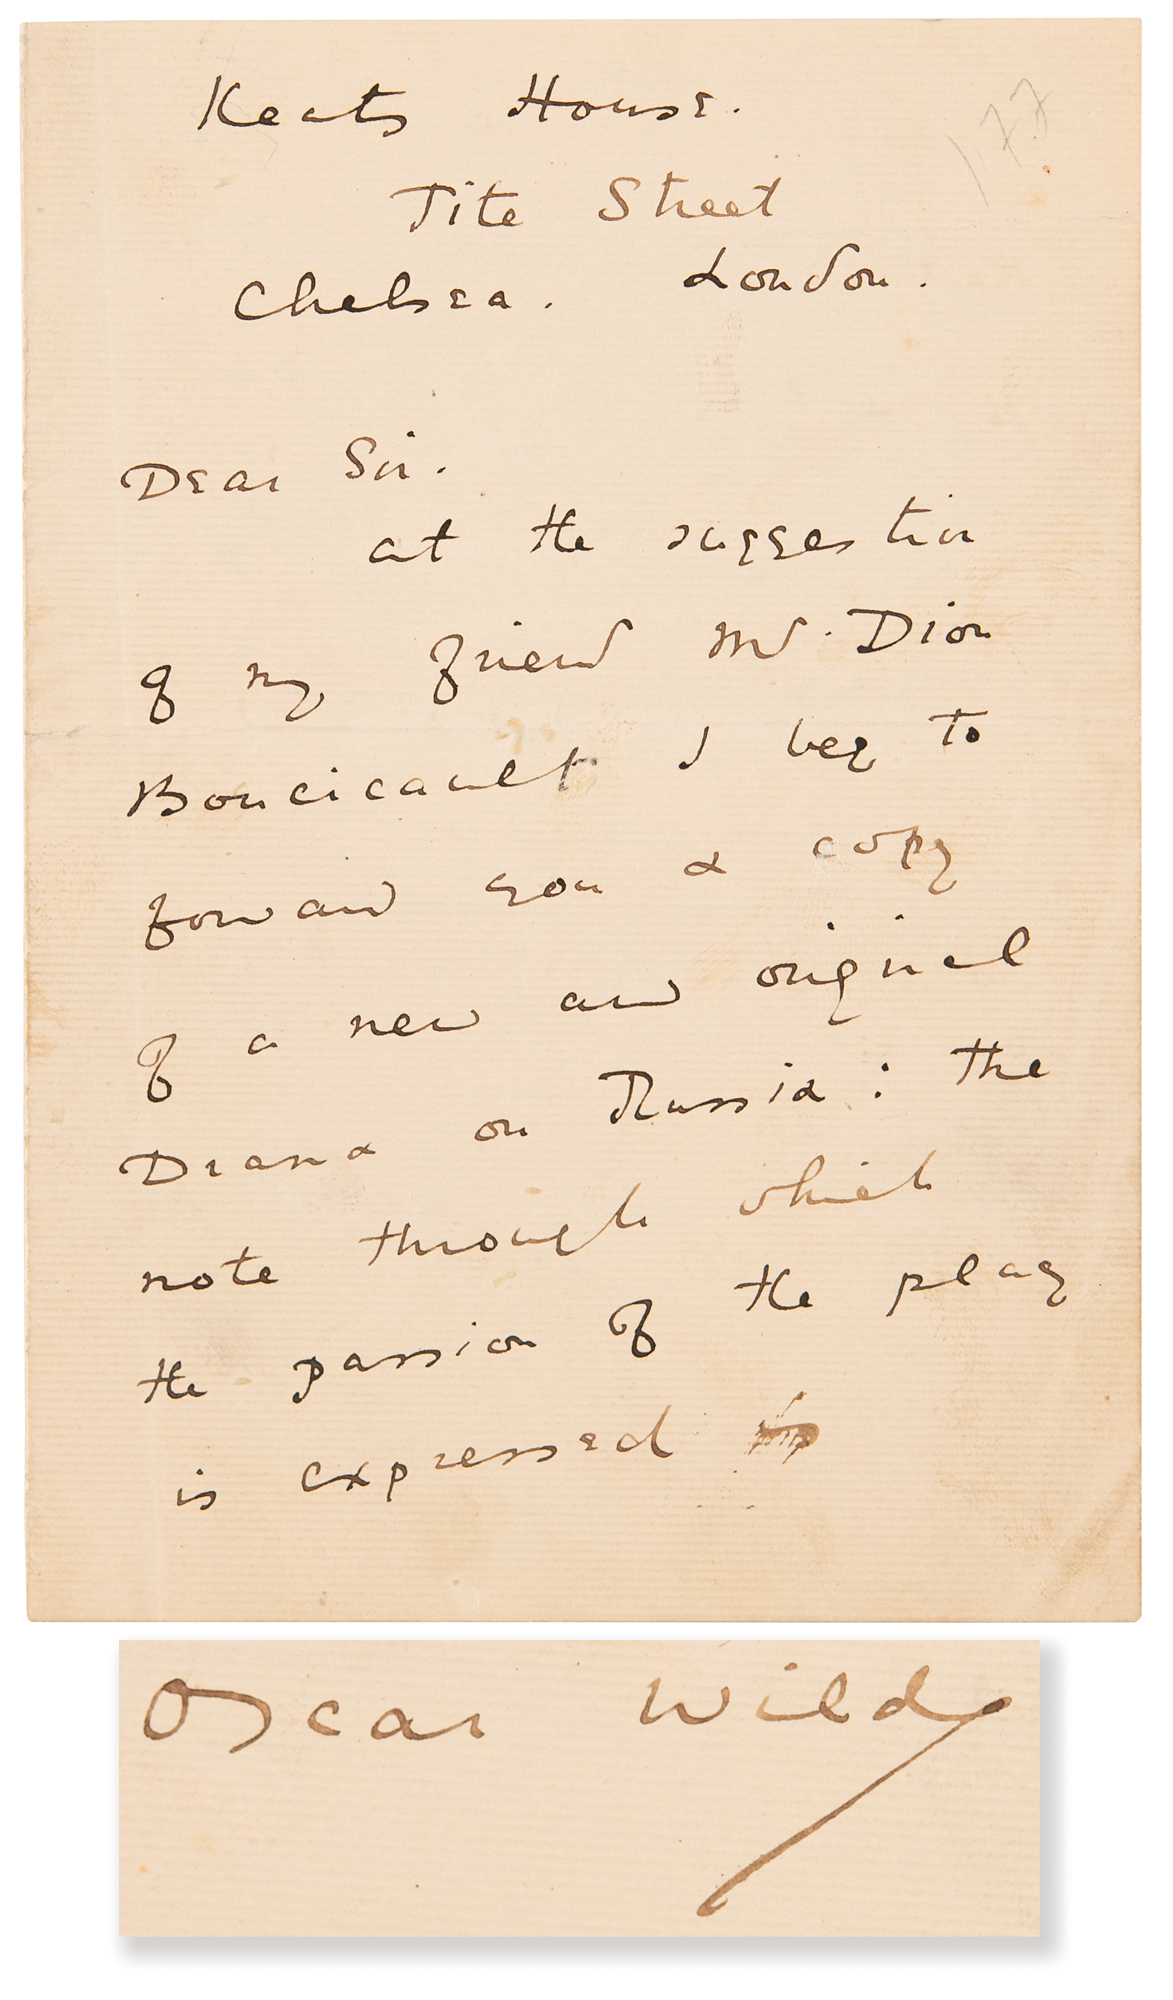 Keats House.
177
Tite Street
Chelsea. London.
Dear Sir.
at the suggestion
of my friend Mr. Dion
Boucicault I beg to
forward you a copy
of a new and original
Drama on Russia : the
note through which
the passion of the play
is expressed
Oscar Wilde